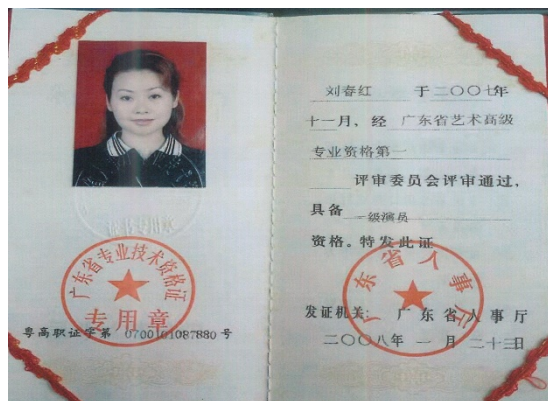 广东省专业技术资格证
专用章
粤高职证字第 0700101087880 号
刘春红 于二〇〇七年
十一月、经 广东省艺术高级
专业资格第一
评审委员会评审通过,
具备 一级演员
资格。特发此证
广东省人事厅
发证机关: 广东省人事厅
二〇〇八年 一月 二十三日